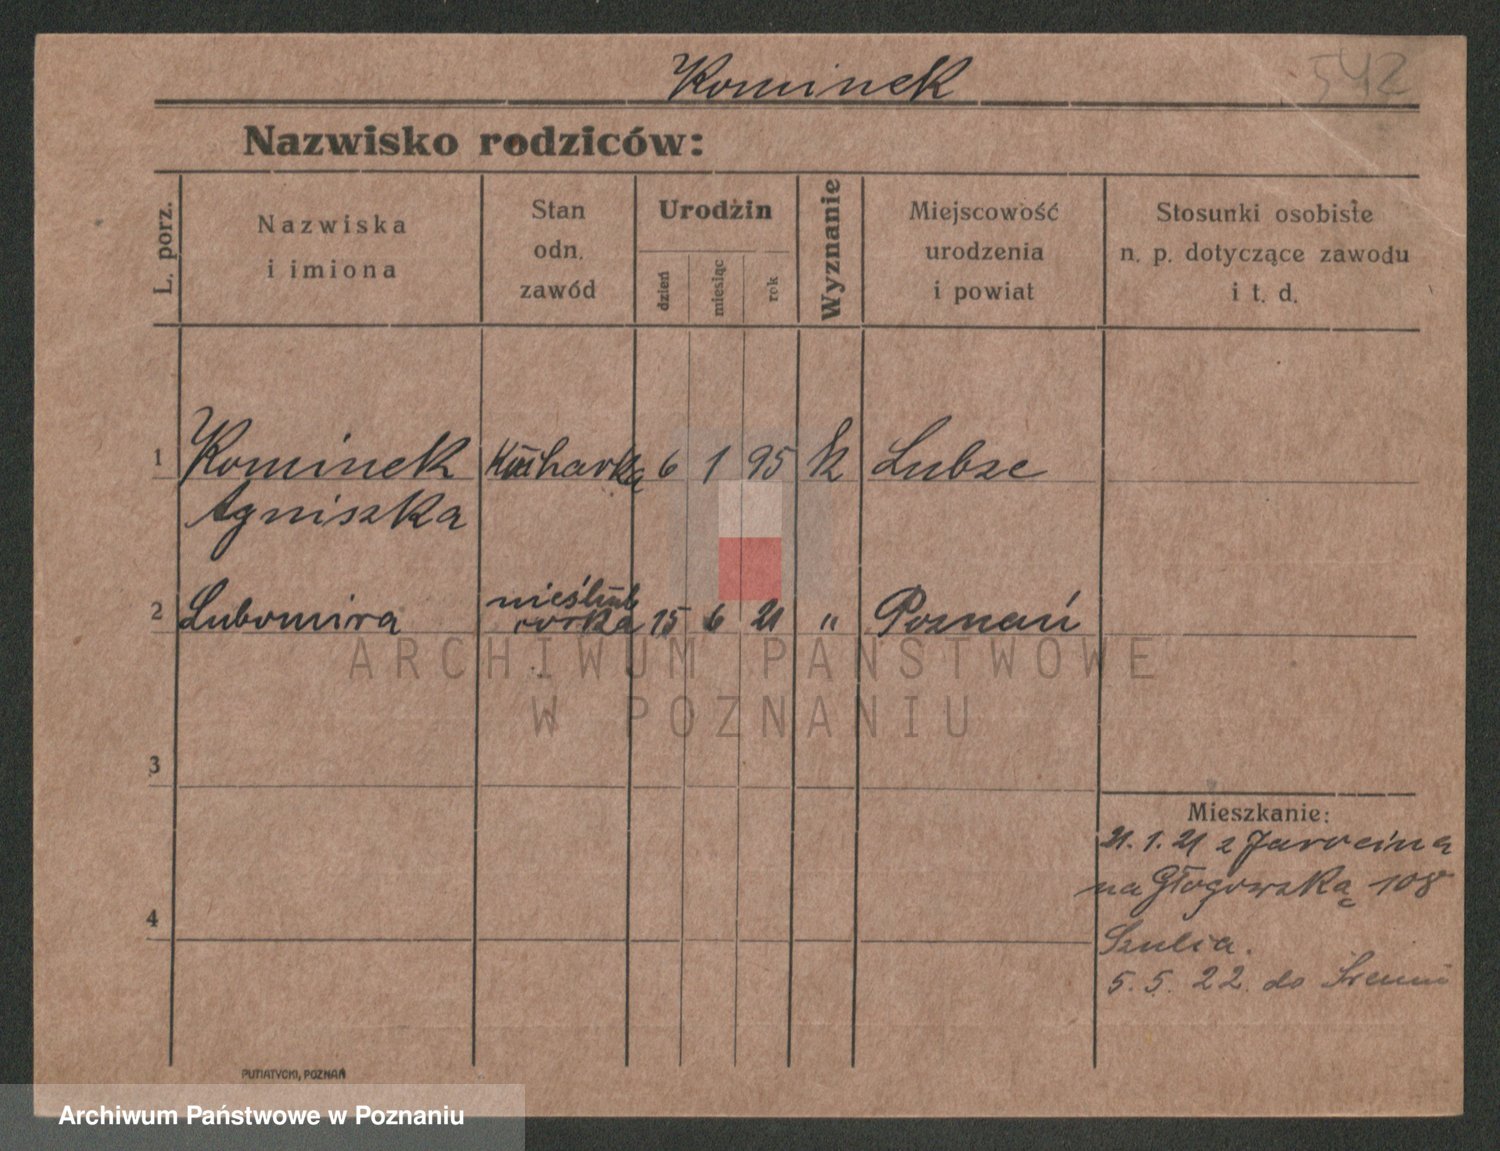 Kominek
542
Nazwisko rodziców:
L. porz.
Nazwiska
i imiona
Stan
odn.
zawód
Urodzin
dzień
miesiąc
rok
Wyznanie
Miejscowość
urodzenia
i powiat
Stosunki osobiste
n. p. dotyczące zawodu
i t. d.
1 Kominek Kucharka 6 1 95 k Lubze
Agniszka
nieślub
2 Lubomira corka 15 6 21 " Poznań
ARCHIWUM PAŃSTWOWE
W POZNANIU
3
Mieszkanie:
21. 1. 21 z Jarocina
na Głogowską 108
4
Szulca.
5. 5. 22. do Śremu
PUTIATYCKI, POZNAŃ
Archiwum Państwowe w Poznaniu